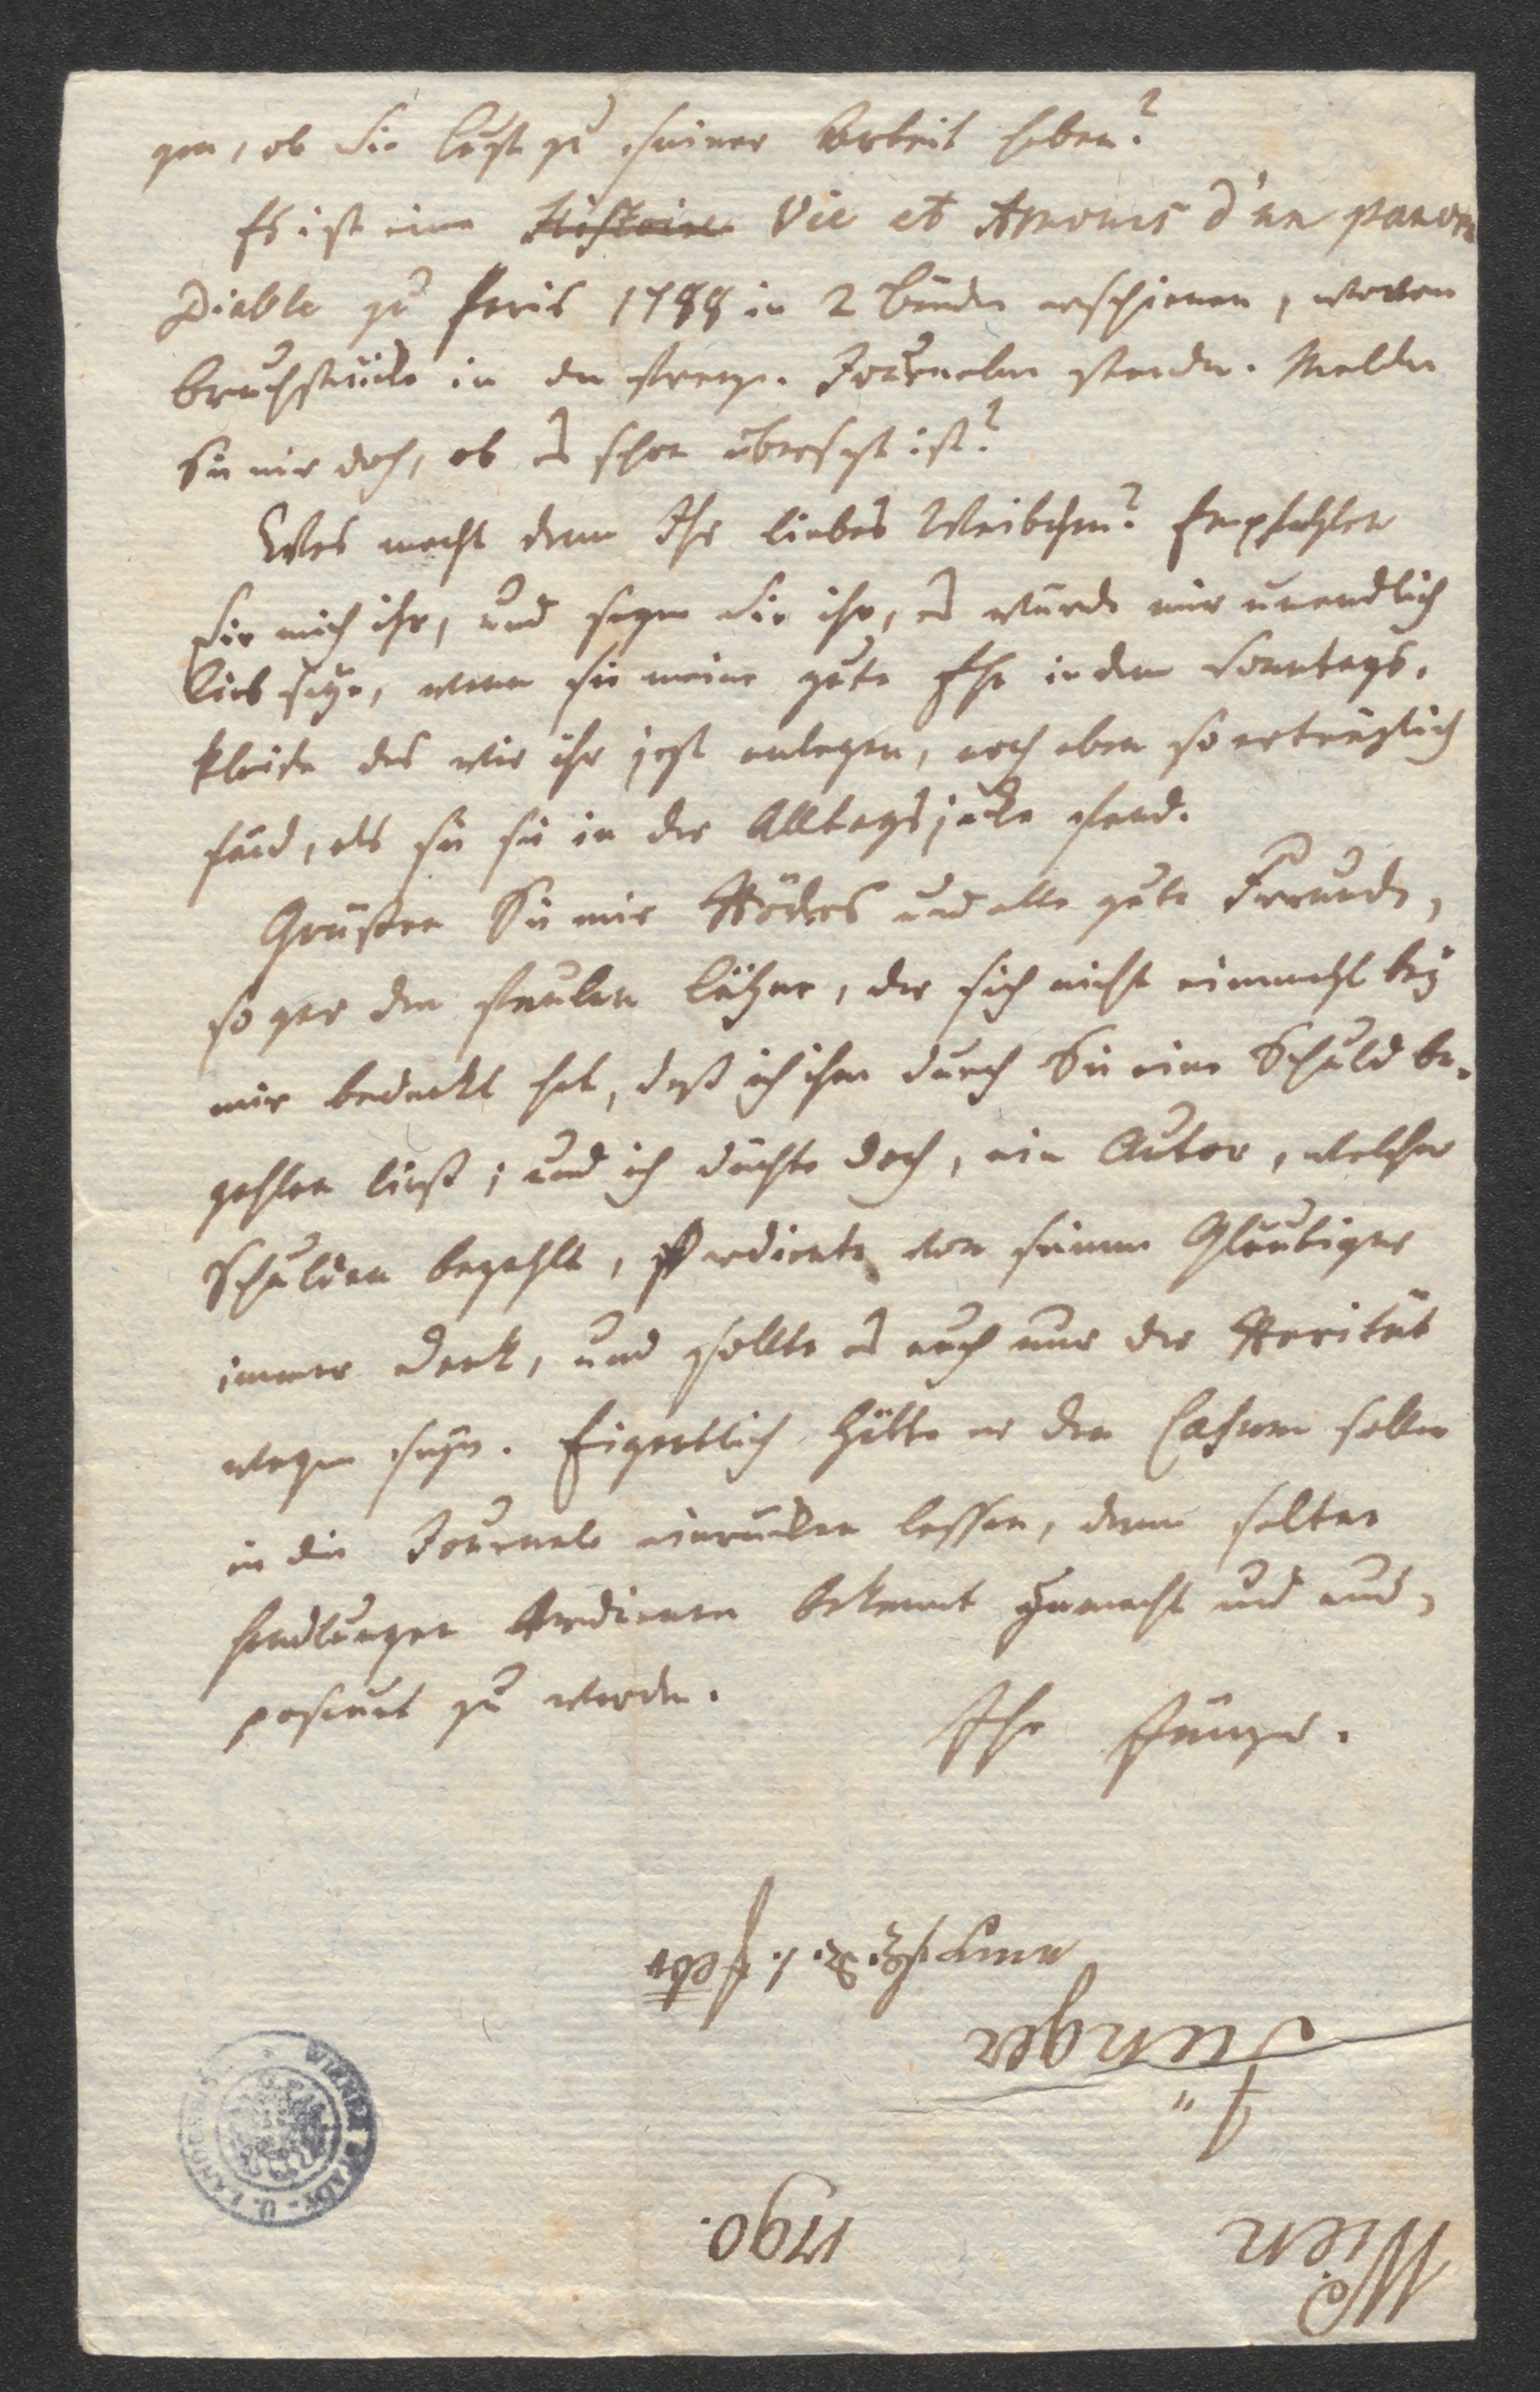 gen, ob Sie Lust zu seiner Arbeit haben?
Es ist eine Histoire Vie et Amours d'un pauvre
Diable zu Paris 1788 in 2 Bänden erschienen, wovon
Bruchstücke in den franz. Journalen standen. Melden
Sie mir doch, ob es schon übersezt ist?
Was macht denn Ihr liebes Weibchen? Empfehlen
Sie mich ihr, und sagen Sie ihr, es würde mir unendlich
lieb seyn, wenn sie meine gute Ehe in dem Sonntags-
kleide das wir ihr jezt anlegen, noch eben so erträglich
fänd, als sie sie in der Alltagsjacke fand.
Grüßen Sie mir und alle gute Freunde,
so gar den faulen, der sich nicht einmahl bey
mir bedankt hat, daß ich ihm durch Sie eine Schuld be-
zahlen ließ; und ich dächte doch, ein Autor, welcher
Schulden bezahlt, verdiente von seinem Gläubiger
immer Dank, und sollte es auch nur der Rarität
wegen seyn. Eigentlich hätte er den Casum sollen
in die Journale einrücken lassen, denn seltne
Handlungen verdienen bekannt gemacht und aus-
posaunt zu werden.
Ihr Jünger.
Wien 1790.
Jünger